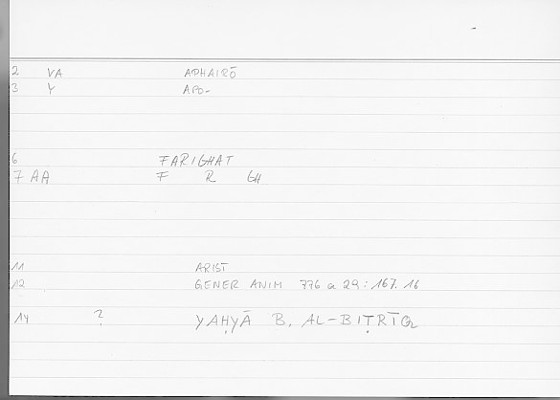 2 VA APHAIRŌ
3 Y APO-
6 FARIGHAT
7 AA F R GH
11 ARIST
12 GENER ANIM 776 a 29 : 167. 16
14 ? YAḤYĀ B. AL-BIṬRĪQ